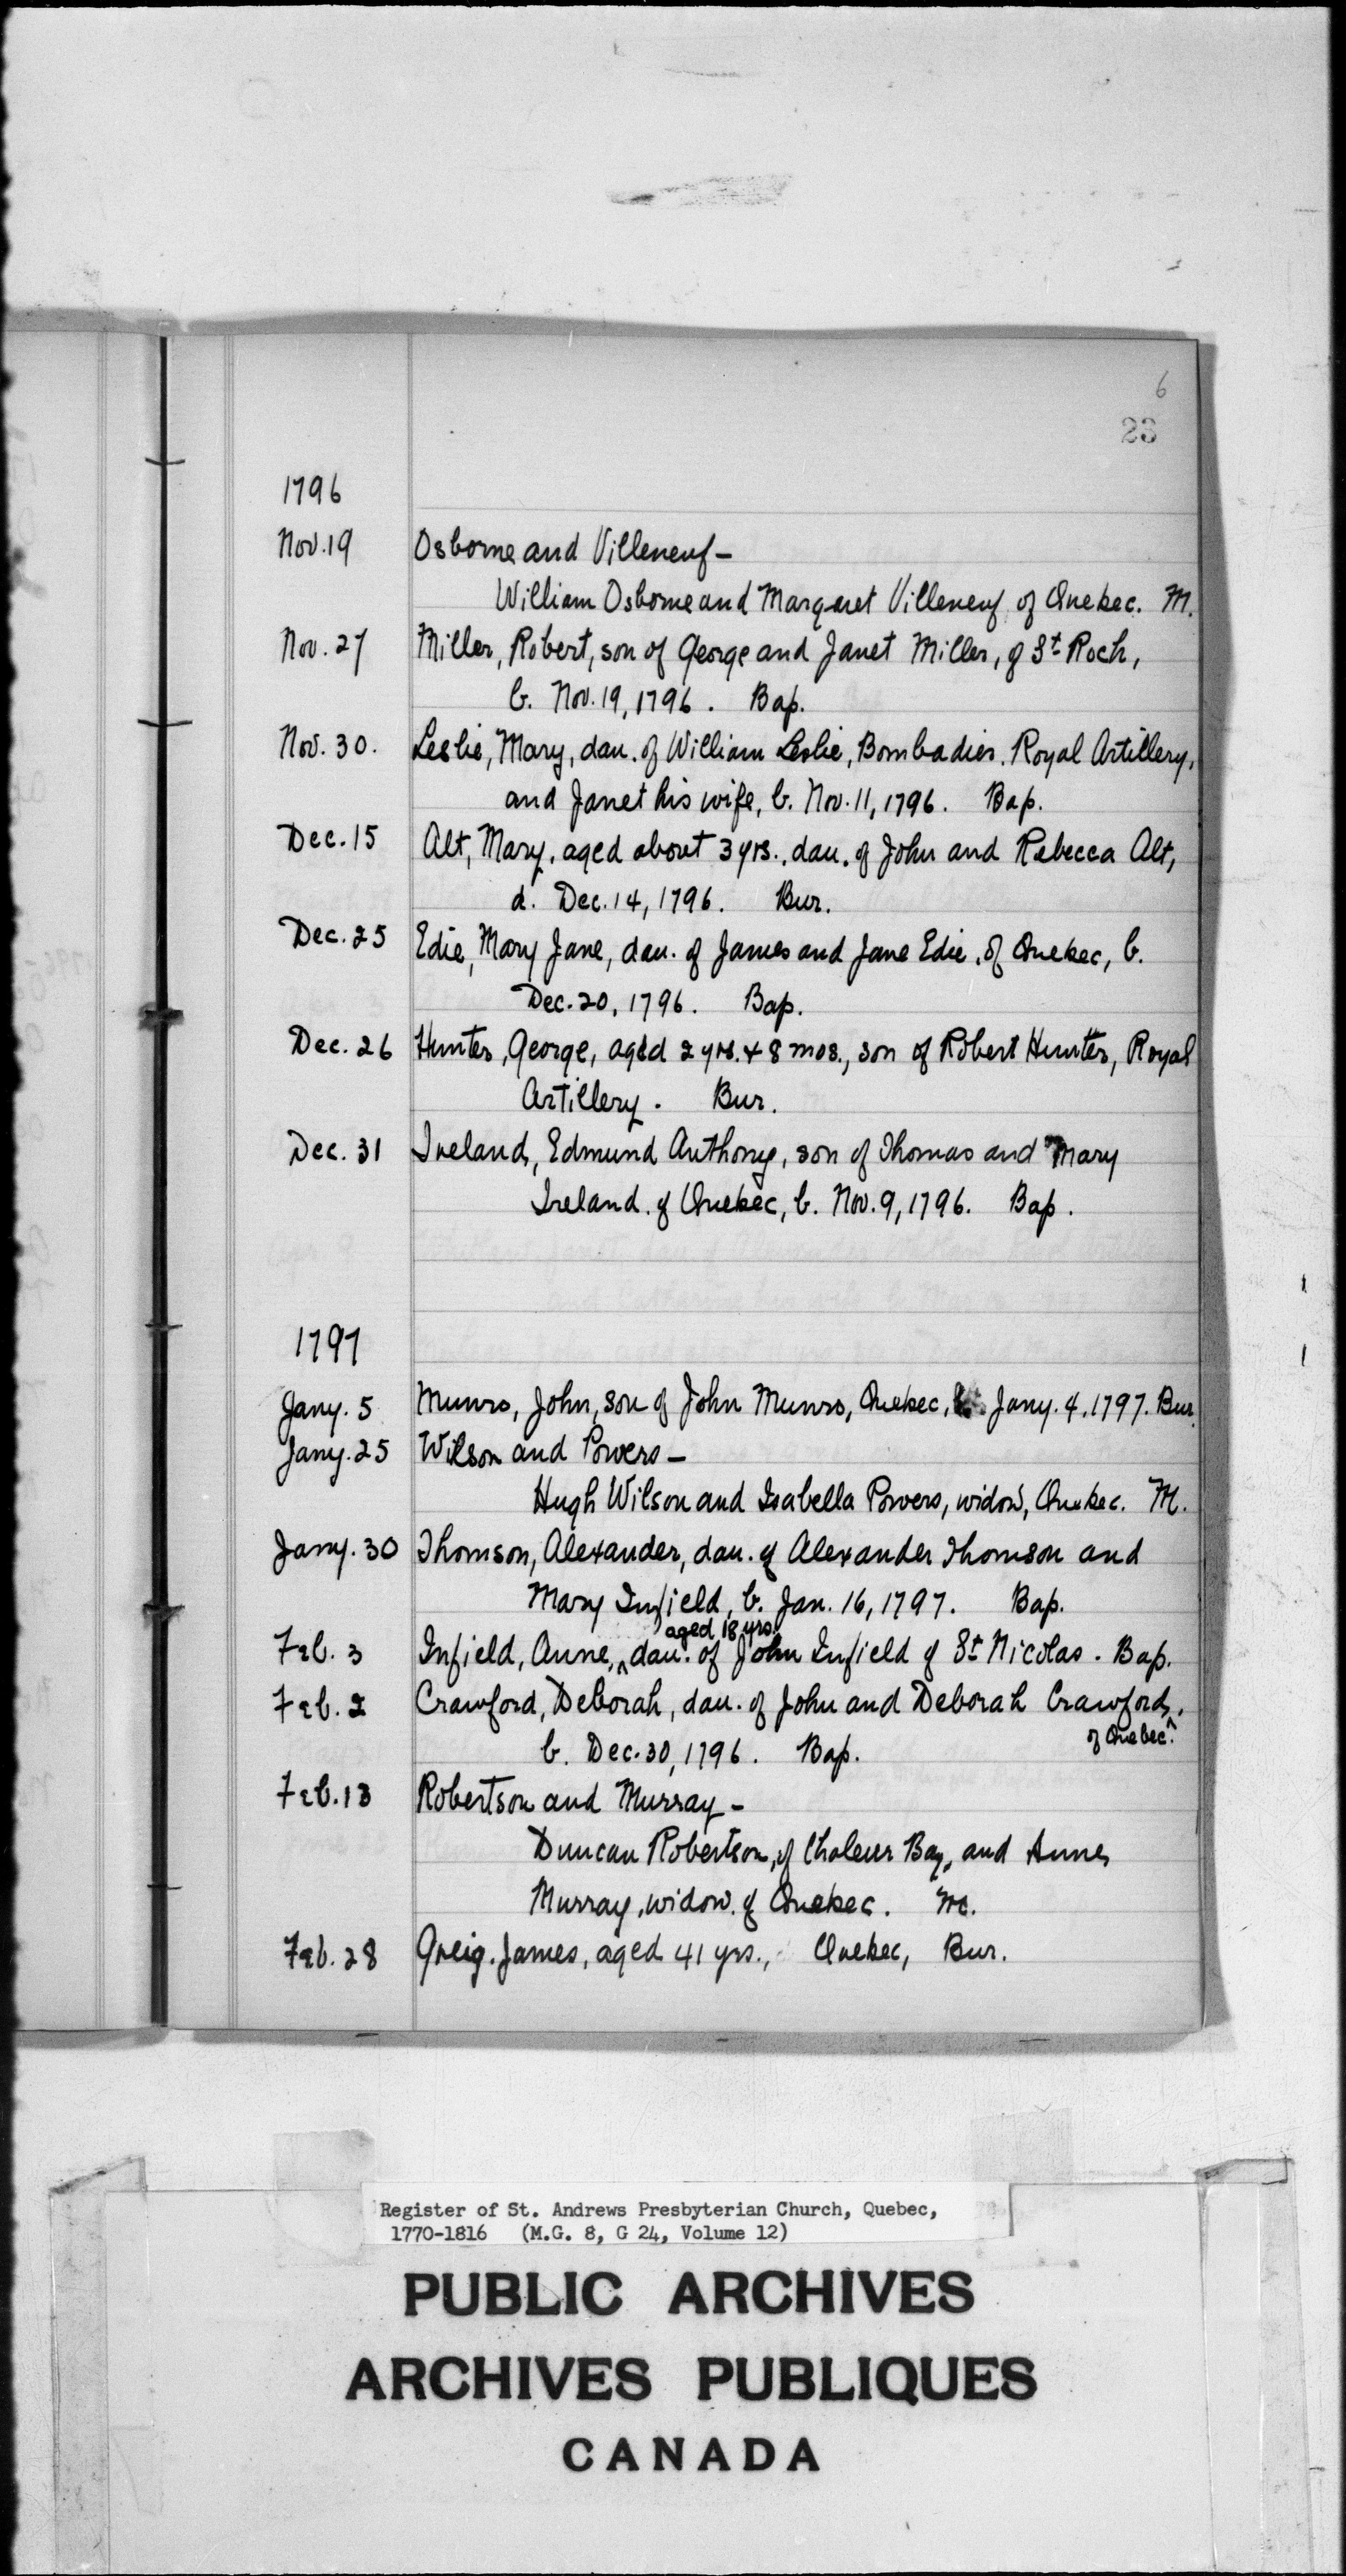 6
23
1796
Nov. 19 Osborne and Villeneuf -
William Osborne and Margaret Villeneuf of Quebec. M.
Nov. 27 Miller, Robert, son of George and Janet Miller, of St. Roch,
b. Nov. 19, 1796. Bap.
Nov. 30. Leslie, Mary, dau. of William Leslie, Bombadier, Royal Artillery,
and Janet his wife, b. Nov. 11, 1796. Bap.
Dec. 15 Alt, Mary, aged about 3 yrs., dau. of John and Rebecca Alt,
d. Dec. 14, 1796. Bur.
Dec. 25 Edie, Mary Jane, dau. of James and Jane Edie, of Quebec, b.
Dec. 20, 1796. Bap.
Dec. 26 Hunter, George, aged 2 yrs. + 8 mos., son of Robert Hunter, Royal
Artillery. Bur.
Dec. 31 Ireland, Edmund Anthony, son of Thomas and Mary
Ireland of Quebec, b. Nov. 9, 1796. Bap.
1797
Jany. 5 Munro, John, son of John Munro, Quebec, Jany. 4, 1797. Bur.
Jany. 25 Wilson and Powers -
Hugh Wilson and Isabella Powers, widow, Quebec. M.
Jany. 30 Thomson, Alexander, dau. of Alexander Thomson and
Mary Infield, b. Jan. 16, 1797. Bap.
aged 18 yrs.
Feb. 3 Infield, Anne, ^ dau. of John Infield of St. Nicolas. Bap.
Feb. 2 Crawford, Deborah, dau. of John and Deborah Crawford,
b. Dec. 30, 1796. Bap. of Quebec ^
Feb. 13 Robertson and Murray -
Duncan Robertson, of Chaleur Bay, and Anne
Murray, widow, of Quebec. M.
Feb. 28 Greig, James, aged 41 yrs., Quebec, Bur.
Register of St. Andrews Presbyterian Church, Quebec,
1770-1816 (M.G. 8, G 24, Volume 12)
PUBLIC ARCHIVES
ARCHIVES PUBLIQUES
CANADA